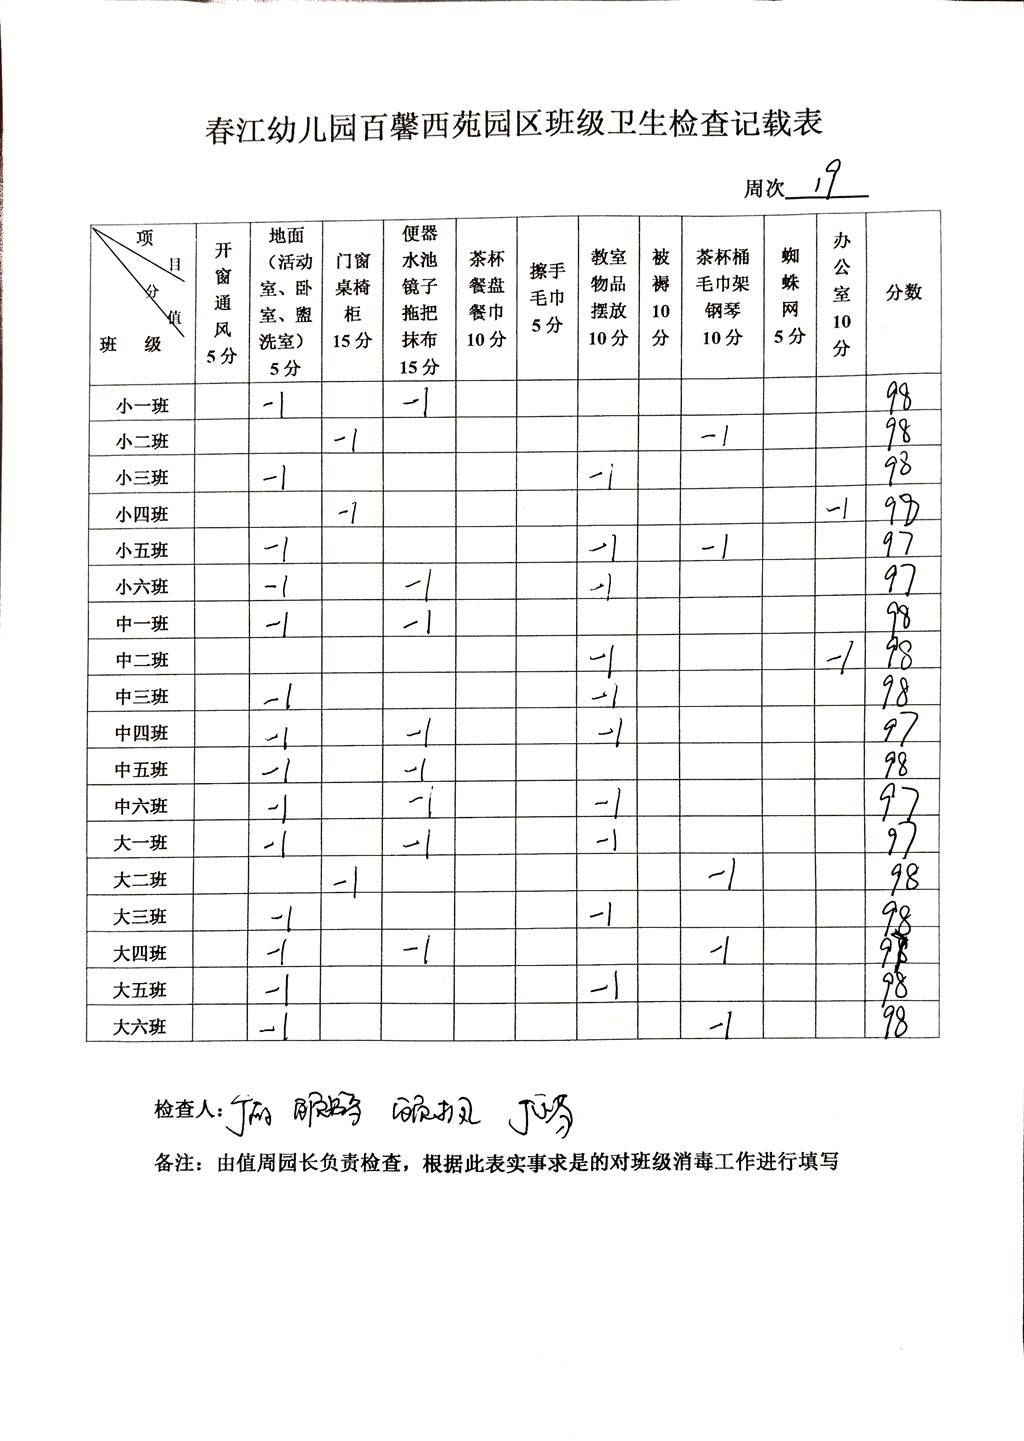 春江幼儿园百馨西苑园区班级卫生检查记载表
周次 19
项目 分值 班级 开窗通风5分 地面（活动室、卧室、盥洗室）5分 门窗桌椅柜15分 便器水池镜子拖把抹布15分 茶杯餐盘餐巾10分 擦手毛巾5分 教室物品摆放10分 被褥10分 茶杯桶毛巾架钢琴10分 蜘蛛网5分 办公室10分 分数
小一班 -1 -1 98
小二班 -1 -1 98
小三班 -1 -1 98
小四班 -1 -1 98
小五班 -1 -1 -1 97
小六班 -1 -1 -1 97
中一班 -1 -1 98
中二班 -1 -1 98
中三班 -1 -1 98
中四班 -1 -1 -1 97
中五班 -1 -1 98
中六班 -1 -1 -1 97
大一班 -1 -1 -1 97
大二班 -1 -1 98
大三班 -1 -1 98
大四班 -1 -1 -1
大五班 -1 -1 98
大六班 -1 -1 98
检查人：
备注：由值周园长负责检查，根据此表实事求是的对班级消毒工作进行填写